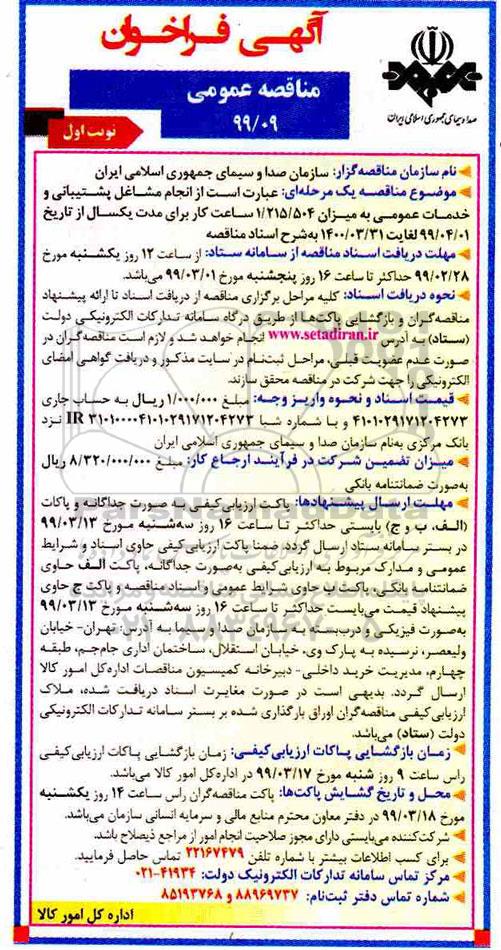 آگهی فراخوان
مناقصه عمومی
۹۹/۰۹
نوبت اول
صدا و سیمای جمهوری اسلامی ایران
نام سازمان مناقصه‌گزار: سازمان صدا و سیمای جمهوری اسلامی ایران
موضوع مناقصه یک مرحله‌ای: عبارت است از انجام مشاغل پشتیبانی و
خدمات عمومی به میزان ۱/۲۱۵/۵۰۴ ساعت کار برای مدت یکسال از تاریخ
۹۹/۰۴/۰۱ لغایت ۱۴۰۰/۰۳/۳۱ به‌شرح اسناد مناقصه
مهلت دریافت اسناد مناقصه از سامانه ستاد: از ساعت ۱۲ روز یکشنبه مورخ
۹۹/۰۲/۲۸ حداکثر تا ساعت ۱۶ روز پنجشنبه مورخ ۹۹/۰۳/۰۱ می‌باشد.
نحوه دریافت اسناد: کلیه مراحل برگزاری مناقصه از دریافت اسناد تا ارائه پیشنهاد
مناقصه‌گران و بازگشایی پاکت‌ها از طریق درگاه سامانه تدارکات الکترونیکی دولت
(ستاد) به آدرس www.setadiran.ir انجام خواهد شد و لازم است مناقصه‌گران در
صورت عدم عضویت قبلی، مراحل ثبت‌نام در سایت مذکور و دریافت گواهی امضای
الکترونیکی را جهت شرکت در مناقصه محقق سازند.
قیمت اسناد و نحوه واریز وجه: مبلغ ۱/۰۰۰/۰۰۰ ریال به حساب جاری
۴۱۰۱۰۲۹۱۷۱۲۰۴۲۷۳ و با شماره شبا IR ۳۱۰۱۰۰۰۰۴۱۰۱۰۲۹۱۷۱۲۰۴۲۷۳ نزد
بانک مرکزی به‌نام سازمان صدا و سیمای جمهوری اسلامی ایران
میزان تضمین شرکت در فرآیند ارجاع کار: مبلغ ۸/۳۲۰/۰۰۰/۰۰۰ ریال
به‌صورت ضمانتنامه بانکی
مهلت ارسال پیشنهادها: پاکت ارزیابی‌کیفی به صورت جداگانه و پاکات
(الف، ب و ج) بایستی حداکثر تا ساعت ۱۶ روز سه‌شنبه مورخ ۹۹/۰۳/۱۳
در بستر سامانه ستاد ارسال گردد. ضمنا پاکت ارزیابی‌کیفی حاوی اسناد و شرایط
عمومی و مدارک مربوط به ارزیابی‌کیفی به‌صورت جداگانه، پاکت الف حاوی
ضمانتنامه بانکی، پاکت ب حاوی شرایط عمومی و اسناد مناقصه و پاکت ج حاوی
پیشنهاد قیمت می‌بایست حداکثر تا ساعت ۱۶ روز سه‌شنبه مورخ ۹۹/۰۳/۱۳
به‌صورت فیزیکی و دربسته به سازمان صدا و سیما به آدرس: تهران- خیابان
ولیعصر، نرسیده به پارک وی، خیابان استقلال، ساختمان اداری جام‌جم، طبقه
چهارم، مدیریت خرید داخلی- دبیرخانه کمیسیون مناقصات اداره‌کل امور کالا
ارسال گردد. بدیهی است در صورت مغایرت اسناد دریافت شده، ملاک
ارزیابی‌کیفی مناقصه‌گران اوراق بارگذاری شده بر بستر سامانه تدارکات الکترونیکی
دولت (ستاد) می‌باشد.
زمان بازگشایی پاکات ارزیابی‌کیفی: زمان بازگشایی پاکات ارزیابی‌کیفی
راس ساعت ۹ روز شنبه مورخ ۹۹/۰۳/۱۷ در اداره‌کل امور کالا می‌باشد.
محل و تاریخ گشایش پاکت‌ها: پاکت مناقصه‌گران راس ساعت ۱۴ روز یکشنبه
مورخ ۹۹/۰۳/۱۸ در دفتر معاون محترم منابع مالی و سرمایه انسانی سازمان می‌باشد.
شرکت‌کننده می‌بایستی دارای مجوز صلاحیت انجام امور از مراجع ذیصلاح باشد.
برای کسب اطلاعات بیشتر با شماره تلفن ۲۲۱۶۷۴۷۹ تماس حاصل فرمایید.
مرکز تماس سامانه تدارکات الکترونیک دولت: ۴۱۹۳۴-۰۲۱
شماره تماس دفتر ثبت‌نام: ۸۸۹۶۹۷۳۷ و ۸۵۱۹۳۷۶۸
اداره کل امور کالا